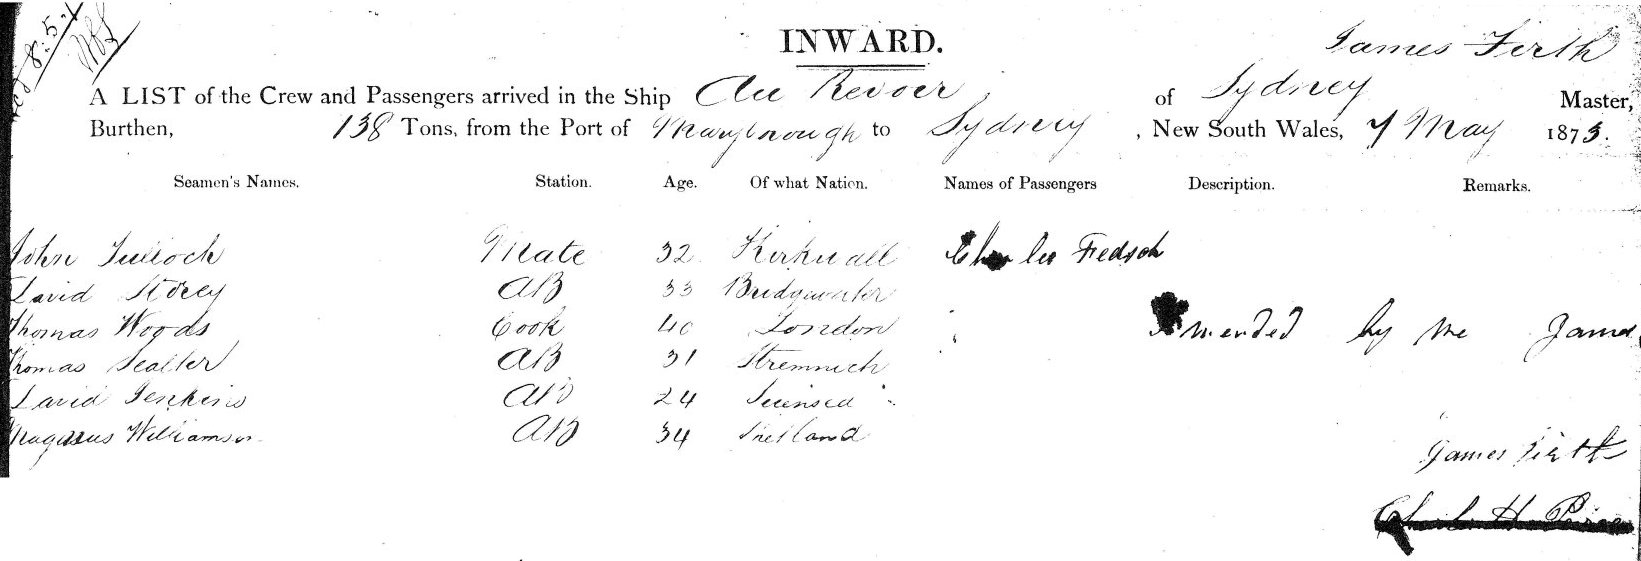 INWARD.
James Firth
A LIST of the Crew and Passengers arrived in the Ship Au Revoir of Sydney Master,
Burthen, 138 Tons, from the Port of Marybrough to Sydney, New South Wales, 7 May 1873.
Seamen's Names. Station. Age. Of what Nation. Names of Passengers Description. Remarks.
John Tulloch Mate 32 Kirkwall Charles Fredsch
David Storey AB 33 Bridgwater
Thomas Woods Cook 40 London Amended by me James
Thomas Sealter AB 31
David Jenkins AB 24
Magnus Williamson AB 34 Shetland
James Firth